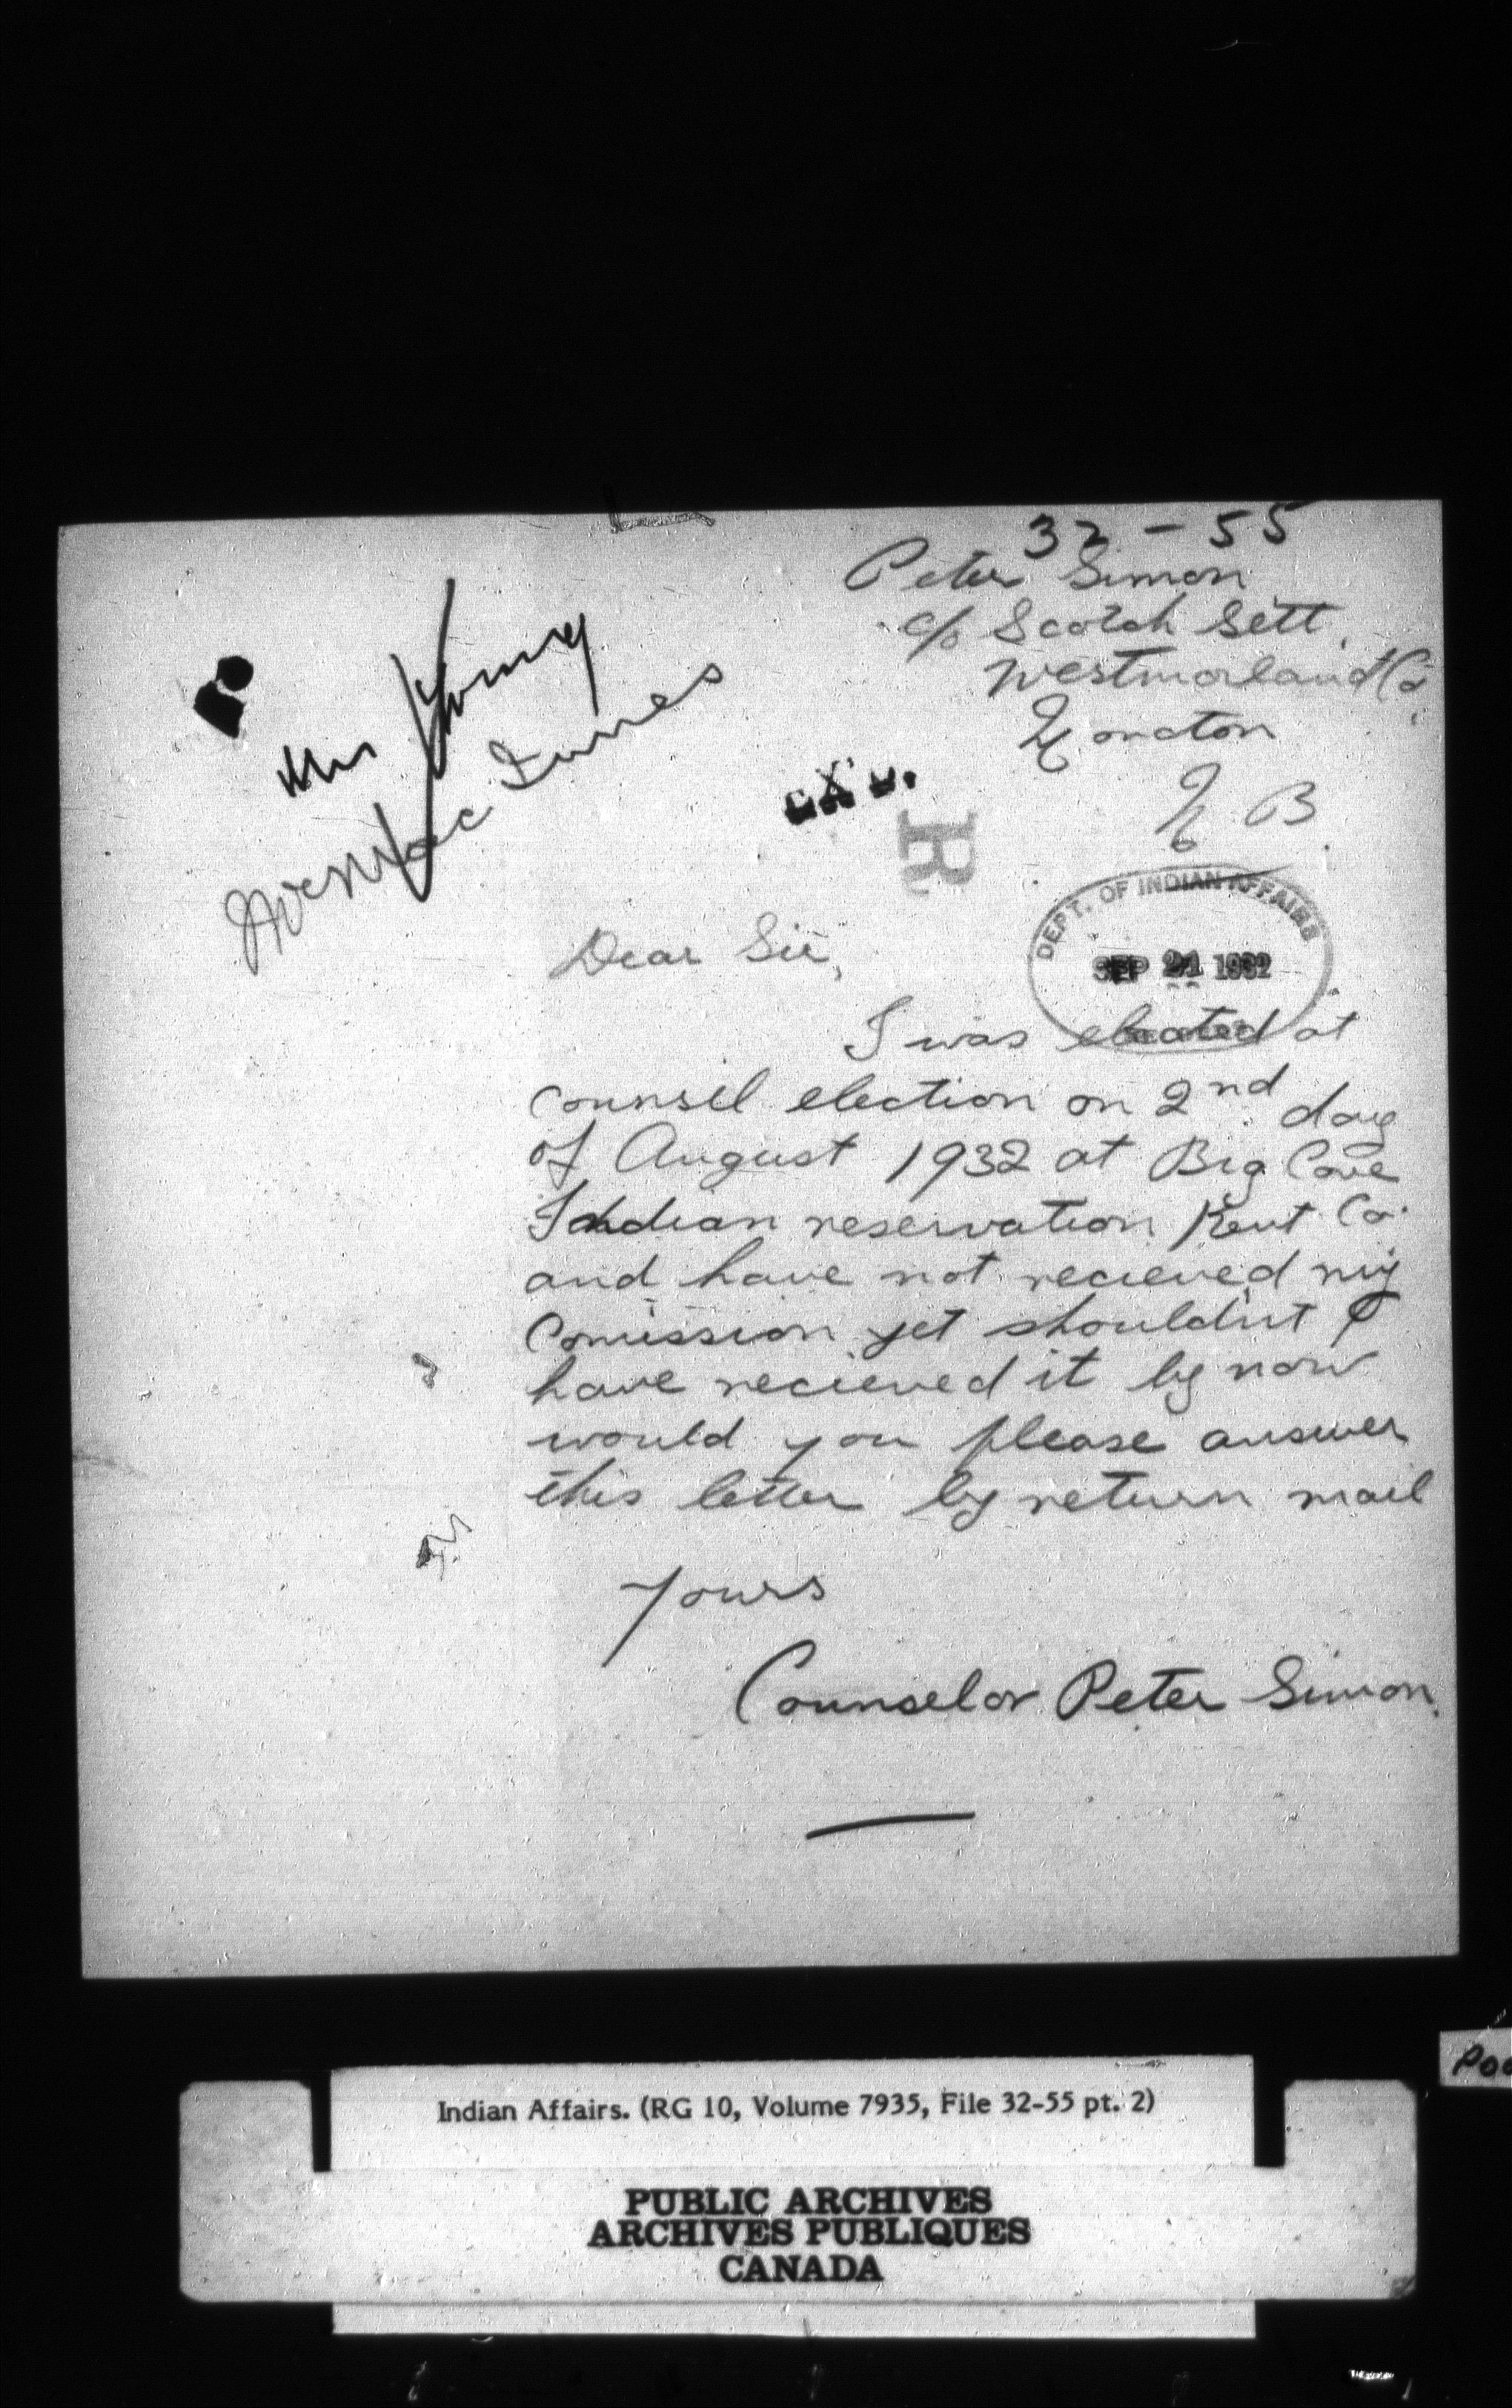 32-55
Peter Simon
c/o Scotch Sett.
Westmorland Co.
Moncton
N B.
Mr Young
Mr MacInnes
R
DEPT. OF INDIAN AFFAIRS
SEP 21 1932
Dear Sir,
I was elected at
Counsel election on 2nd day
of August 1932 at Big Cove
Indian reservation Kent Co.
and have not recieved my
Comission yet shouldnt I
have recieved it by now
would you please answer
this letter by return mail
Yours
Counselor Peter Simon.
Indian Affairs. (RG 10, Volume 7935, File 32-55 pt. 2)
PUBLIC ARCHIVES
ARCHIVES PUBLIQUES
CANADA